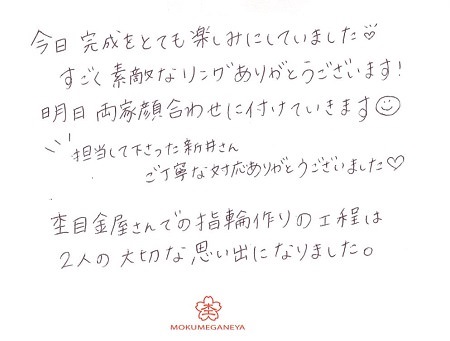 今日 完成をとても楽しみにしていました♡
すごく素敵なリングありがとうございます!
明日 両家顔合わせに付けていきます☺
担当して下さった新井さん
ご丁寧な対応ありがとうございました♡
杢目金屋さんでの指輪作りの工程は
2人の大切な思い出になりました。
杢
MOKUMEGANEYA